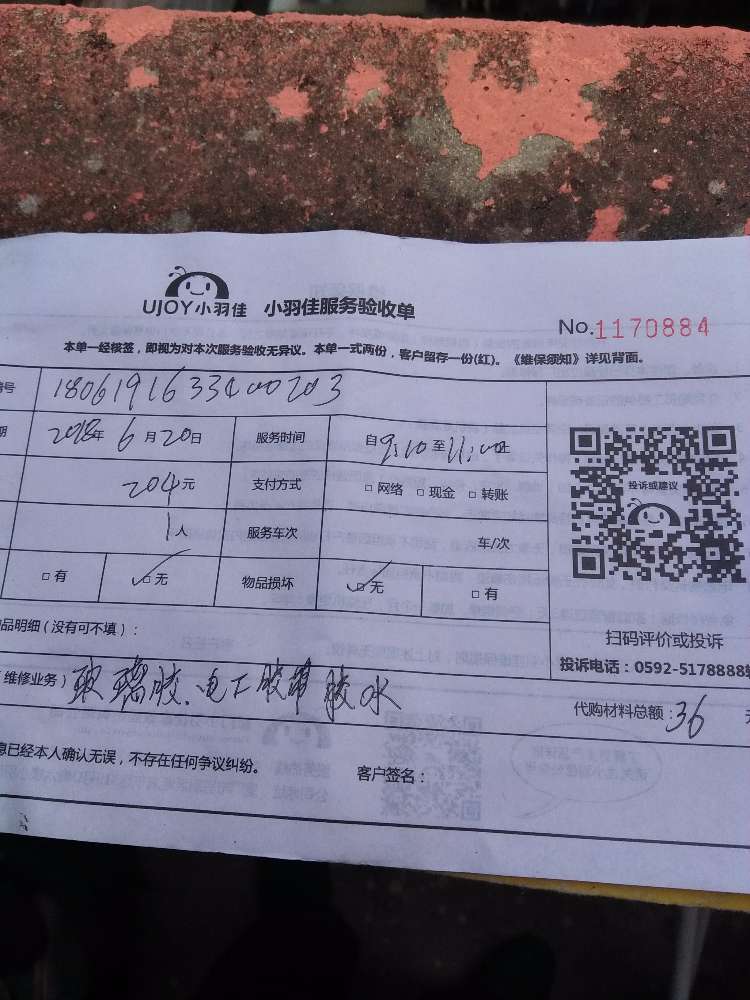 UJOY小羽佳 小羽佳服务验收单
No.1170884
本单一经核签，即视为对本次服务验收无异议。本单一式两份，客户留存一份(红)。《维保须知》详见背面。
号 180619163340020３
期 2018年6月20日 服务时间 自9:10至11:00止
204元 支付方式 □网络 □现金 □转账
1人 服务车次 车/次
□有 □无 物品损坏 □无 □有
投诉或建议
扫码评价或投诉
投诉电话：0592-5178888转
品明细（没有可不填）：
维修业务）玻璃胶、电工胶带 胶水 代购材料总额：36
息已经本人确认无误，不存在任何争议纠纷。 客户签名：